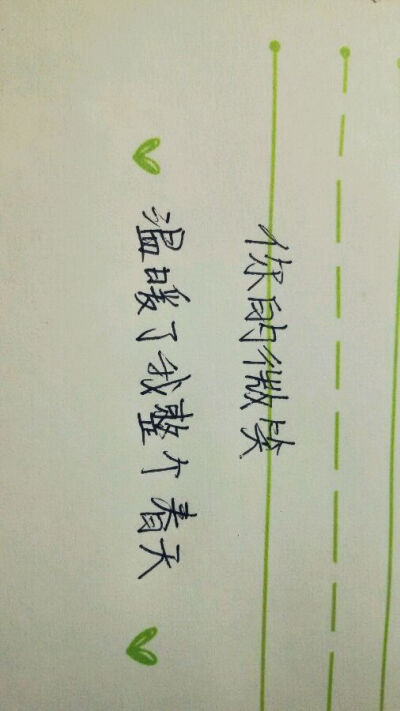 你的微笑
温暖了我整个春天